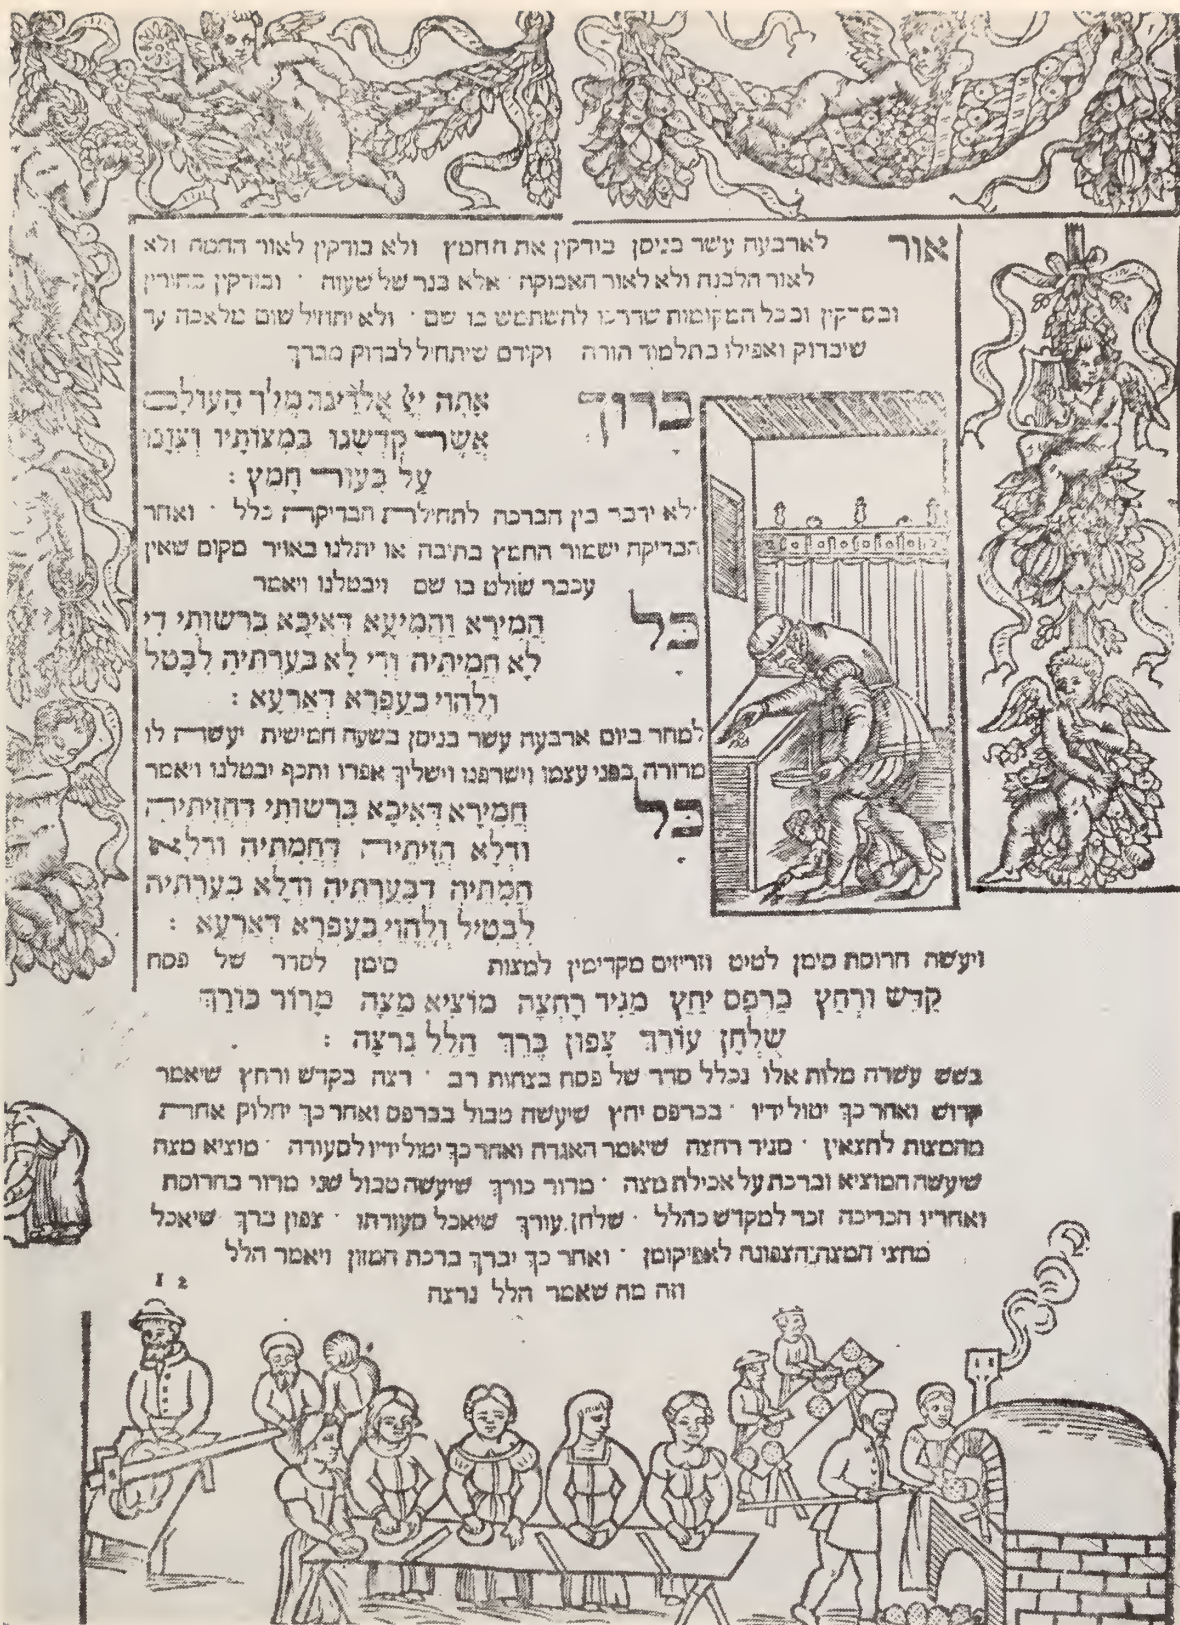 אור לארבעה עשר בניסן בודקין את החמץ ולא בודקין לאור החמה ולא
לאור הלבנה ולא לאור האבוקה אלא בנר של שעוה ובודקין בחורין
ובסדקין ובכל המקומות שדרכו להשתמש בו שם ולא יתחיל שום מלאכה עד
שיבדוק ואפילו בתלמוד תורה וקודם שיתחיל לבדוק מברך
בָּרוּךְ אַתָּה יְיָ אֱלֹהֵינוּ מֶלֶךְ הָעוֹלָם
אֲשֶׁר קִדְּשָׁנוּ בְּמִצְוֹתָיו וְצִוָּנוּ
עַל בִּעוּר חָמֵץ :
ולא ידבר בין הברכה לתחילת הבדיקה כלל ואחר
הבדיקה ישמור החמץ בתיבה או יתלנו באויר מקום שאין
עכבר שולט בו שם ויבטלנו ויאמר
כָּל חֲמִירָא וַחֲמִיעָא דְּאִיכָּא בִּרְשׁוּתִי דִּי
לָא חֲמִיתֵּיהּ וְדִי לָא בִעַרְתֵּיהּ לִבָּטֵל
וְלֶהֱוֵי כְּעַפְרָא דְּאַרְעָא :
למחר ביום ארבעה עשר בניסן בשעה חמישית יעשה לו
מדורה בפני עצמו וישרפנו וישליך אפרו ותכף יבטלנו ויאמר
כָּל חֲמִירָא דְּאִיכָּא בִּרְשׁוּתִי דַּחֲזִיתֵּיהּ
וּדְלָא חֲזִיתֵּיהּ דַּחֲמִתֵּיהּ וּדְלָא
חֲמִתֵּיהּ דְּבִעַרְתֵּיהּ וּדְלָא בִעַרְתֵּיהּ
לִבְטִיל וְלֶהֱוֵי כְּעַפְרָא דְּאַרְעָא :
ויעשה חרוסת סימן לטיט וזריזים מקדימין למצות סימן לסדר של פסח
קַדֵּשׁ וּרְחַץ כַּרְפַּס יַחַץ מַגִּיד רָחְצָה מוֹצִיא מַצָּה מָרוֹר כּוֹרֵךְ
שֻׁלְחָן עוֹרֵךְ צָפוּן בָּרֵךְ הַלֵּל נִרְצָה :
בשש עשרה מלות אלו נכלל סדר של פסח בצחות רב רצה בקדש ורחץ שיאמר
קדוש ואחר כך יטול ידיו בכרפס יחץ שיעשה טבול בכרפס ואחר כך יחלוק אחת
מהמצות לחצאין מגיד רחצה שיאמר האגדה ואחר כך יטול ידיו לסעודה מוציא מצה
שיעשה המוציא וברכת על אכילת מצה מרור כורך שיעשה טבול שני מרור בחרוסת
ואחריו הכריכה זכר למקדש כהלל שלחן עורך שיאכל סעודתו צפון ברך שיאכל
מחצי המצה הצפונה לאפיקומן ואחר כך יברך ברכת המזון ויאמר הלל
וזה מה שאמר הלל נרצה
12